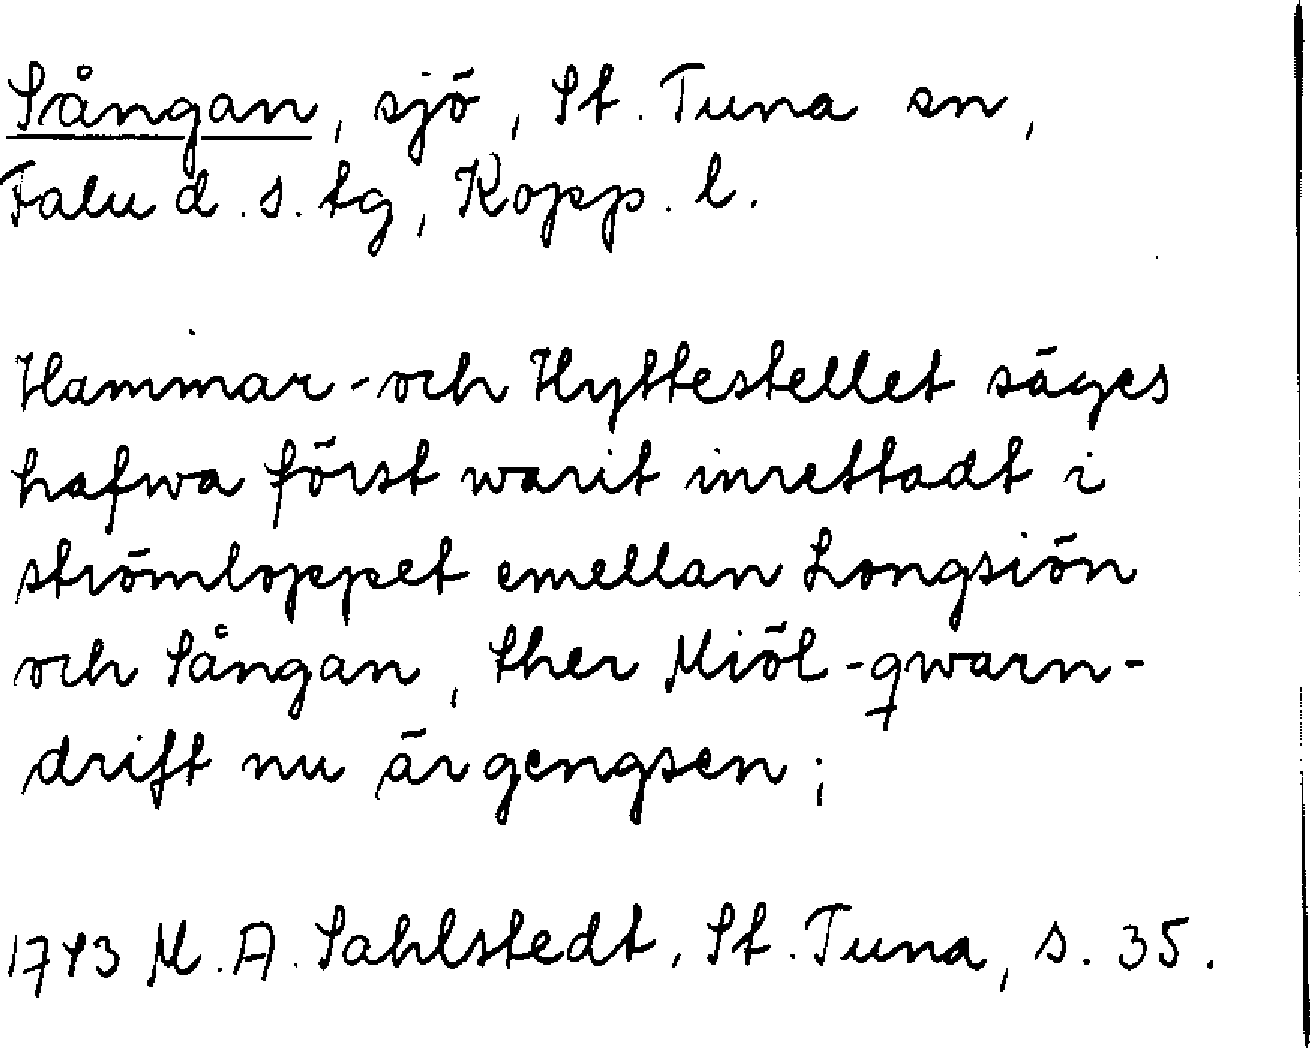 Sångan, sjö, St. Tuna sn,
Falu d.s. tg, Kopp. l.
Hammar-och Hyttestellet säges
hafwa först warit inrettadt i
strömloppet emellan Longsiön
och Sångan, ther Miöl-qwarn-
drift nu är gengsen;
1743 M. A. Sahlstedt, St. Tuna, s. 35.